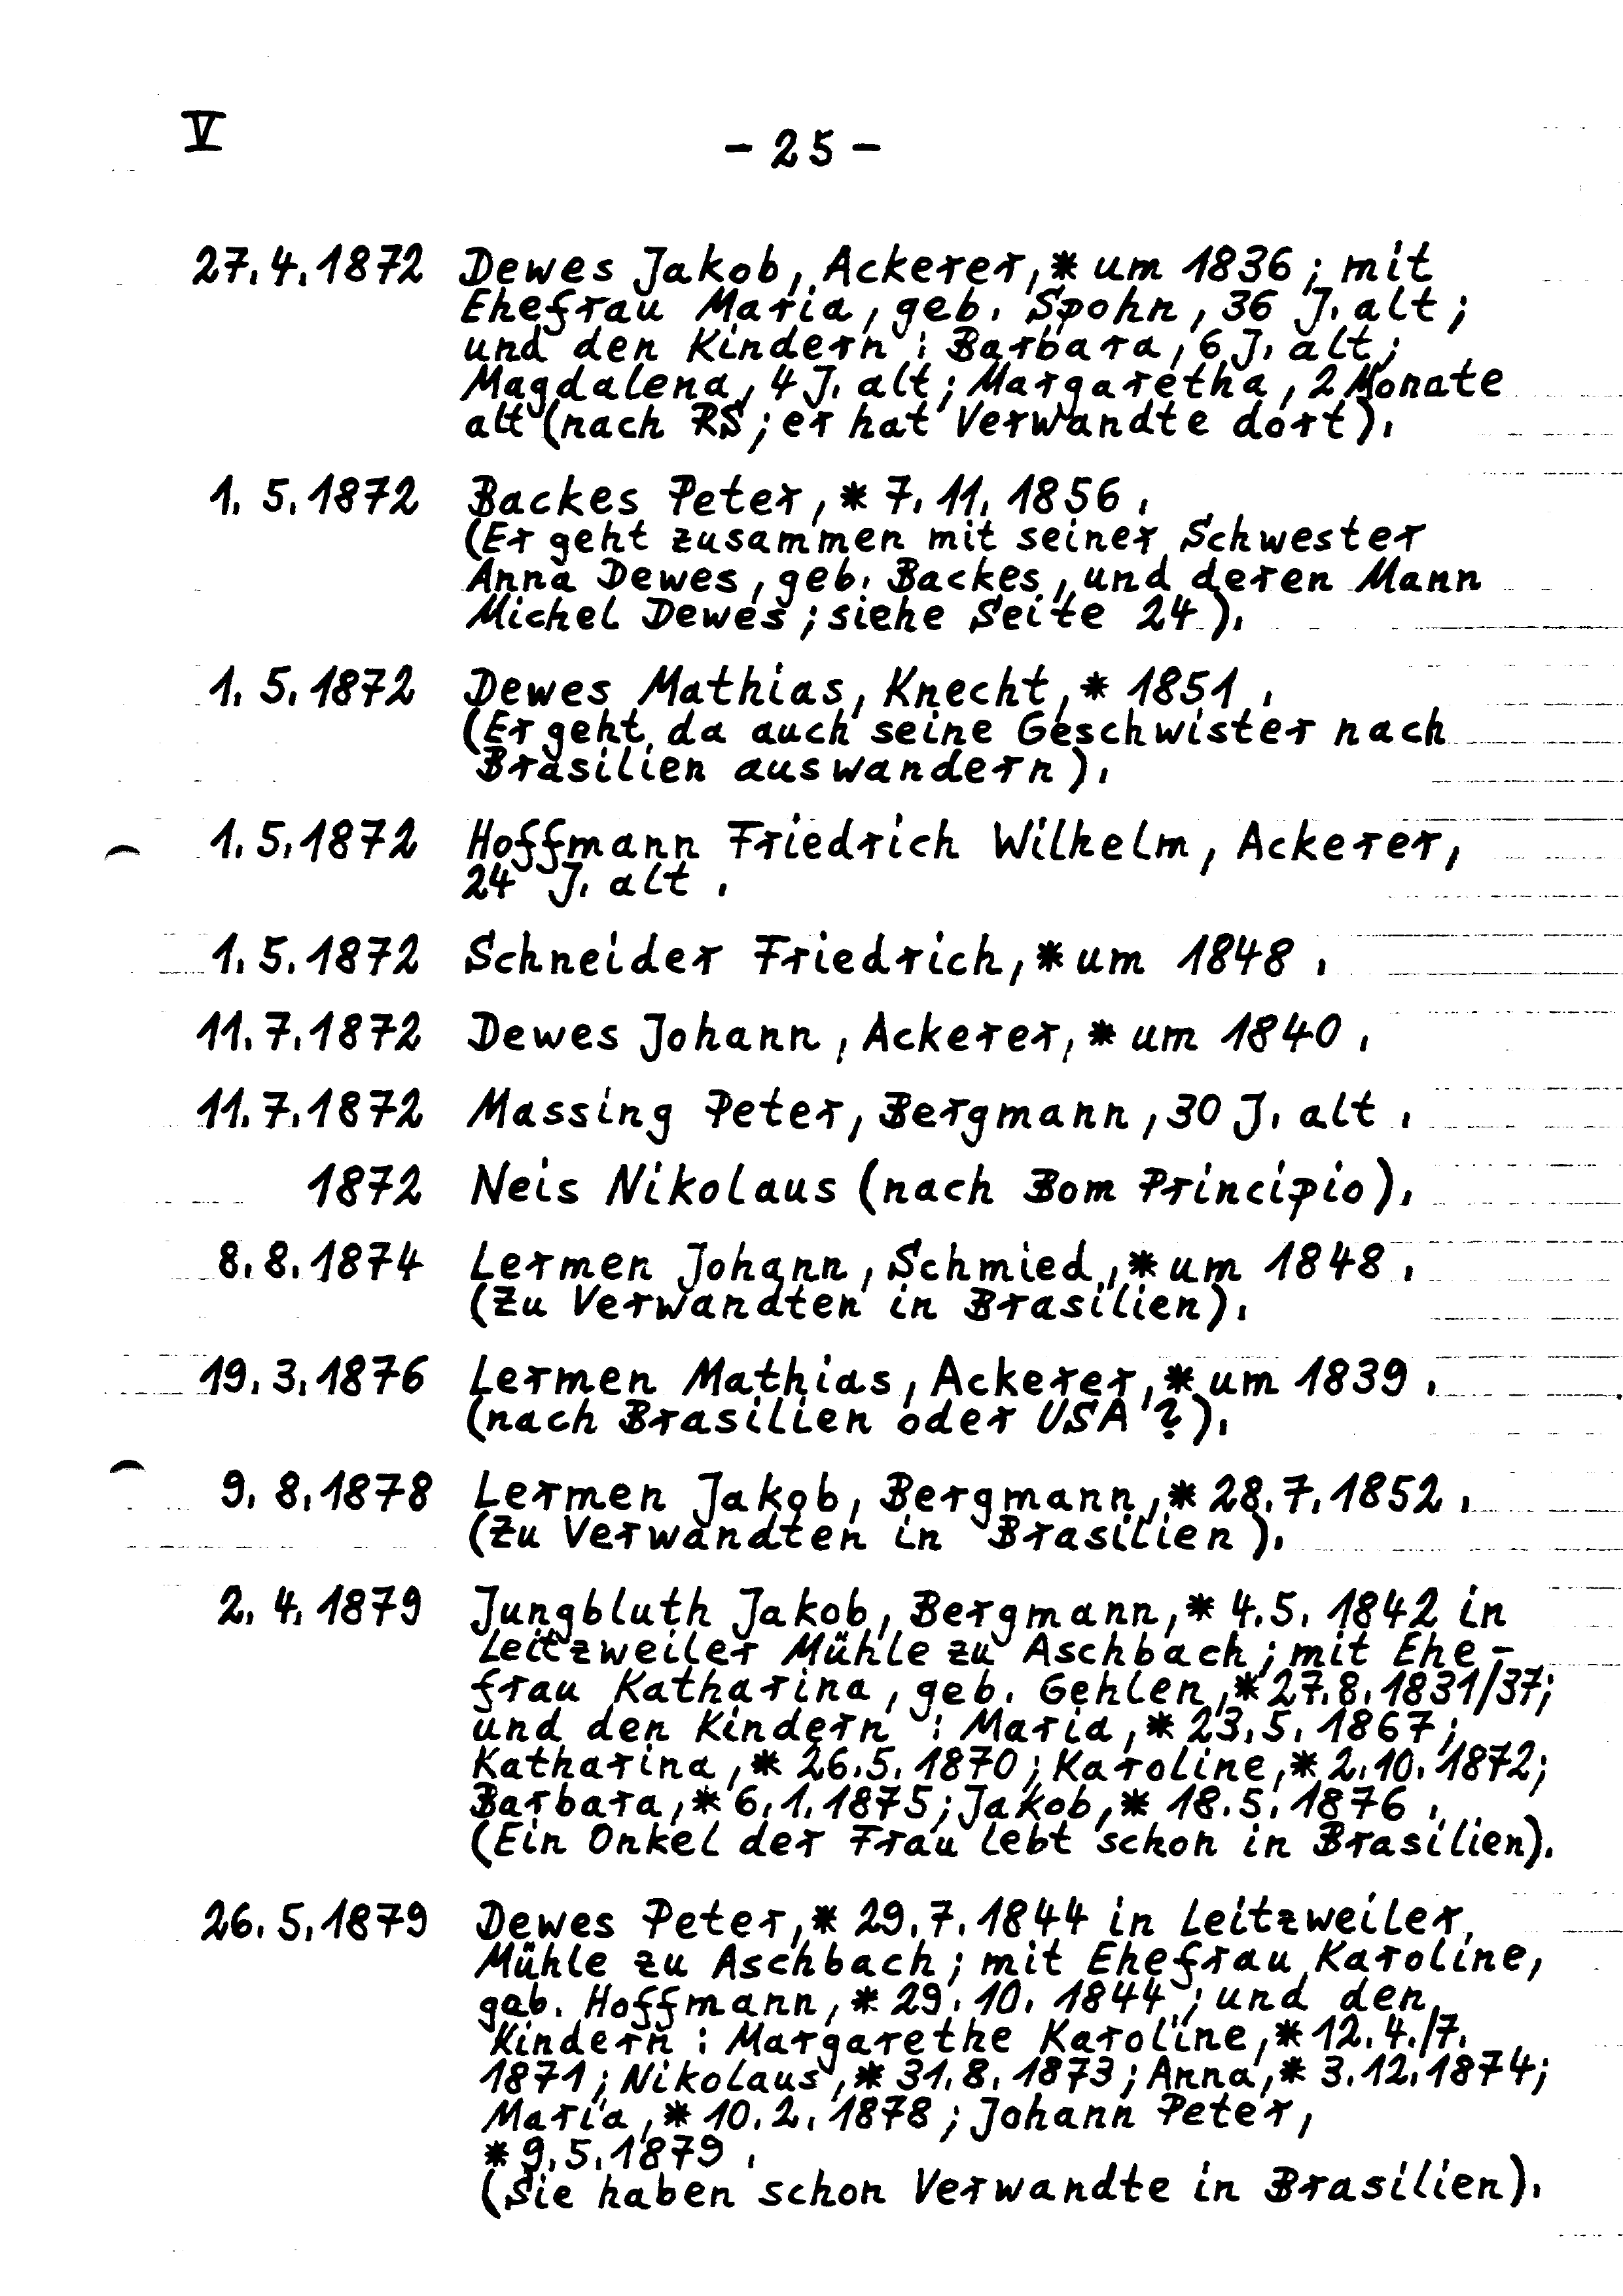 V
- 25 -
27.4.1872 Dewes Jakob, Ackerer, * um 1836; mit
Ehefrau Maria, geb. Spohn, 36 J. alt;
und den Kindern: Barbara, 6 J. alt;
Magdalena, 4 J. alt; Margaretha, 2 Monate
alt (nach RS; er hat Verwandte dort).
1. 5.1872 Backes Peter, * 7.11.1856.
(Er geht zusammen mit seiner Schwester
Anna Dewes, geb. Backes, und deren Mann
Michel Dewes; siehe Seite 24).
1. 5.1872 Dewes Mathias, Knecht, * 1851.
(Er geht, da auch seine Geschwister nach
Brasilien auswandern).
1.5.1872 Hoffmann Friedrich Wilhelm, Ackerer,
24 J. alt.
1.5.1872 Schneider Friedrich, * um 1848.
11.7.1872 Dewes Johann, Ackerer, * um 1840.
11.7.1872 Massing Peter, Bergmann, 30 J. alt.
1872 Neis Nikolaus (nach Bom Principio).
8.8.1874 Lermen Johann, Schmied, * um 1848.
(Zu Verwandten in Brasilien).
19.3.1876 Lermen Mathias, Ackerer, * um 1839.
(nach Brasilien oder USA ?).
9. 8.1878 Lermen Jakob, Bergmann, * 28.7.1852.
(Zu Verwandten in Brasilien).
2. 4.1879 Jungbluth Jakob, Bergmann, * 4.5.1842 in
Leitzweiler Mühle zu Aschbach; mit Ehe-
frau Katharina, geb. Gehlen, * 27.8.1831/37;
und den Kindern: Maria, * 23.5.1867;
Katharina, * 26.5.1870; Karoline, * 2.10.1872;
Barbara, * 6.1.1875; Jakob, * 18.5.1876.
(Ein Onkel der Frau lebt schon in Brasilien).
26.5.1879 Dewes Peter, * 29.7.1844 in Leitzweiler
Mühle zu Aschbach; mit Ehefrau Karoline,
gab. Hoffmann, * 29.10.1844; und den
Kindern: Margarethe Karoline, * 12.4./7.
1871; Nikolaus, * 31.8.1873; Anna, * 3.12.1874;
Maria, * 10.2.1878; Johann Peter,
* 9.5.1879.
(Sie haben schon Verwandte in Brasilien).